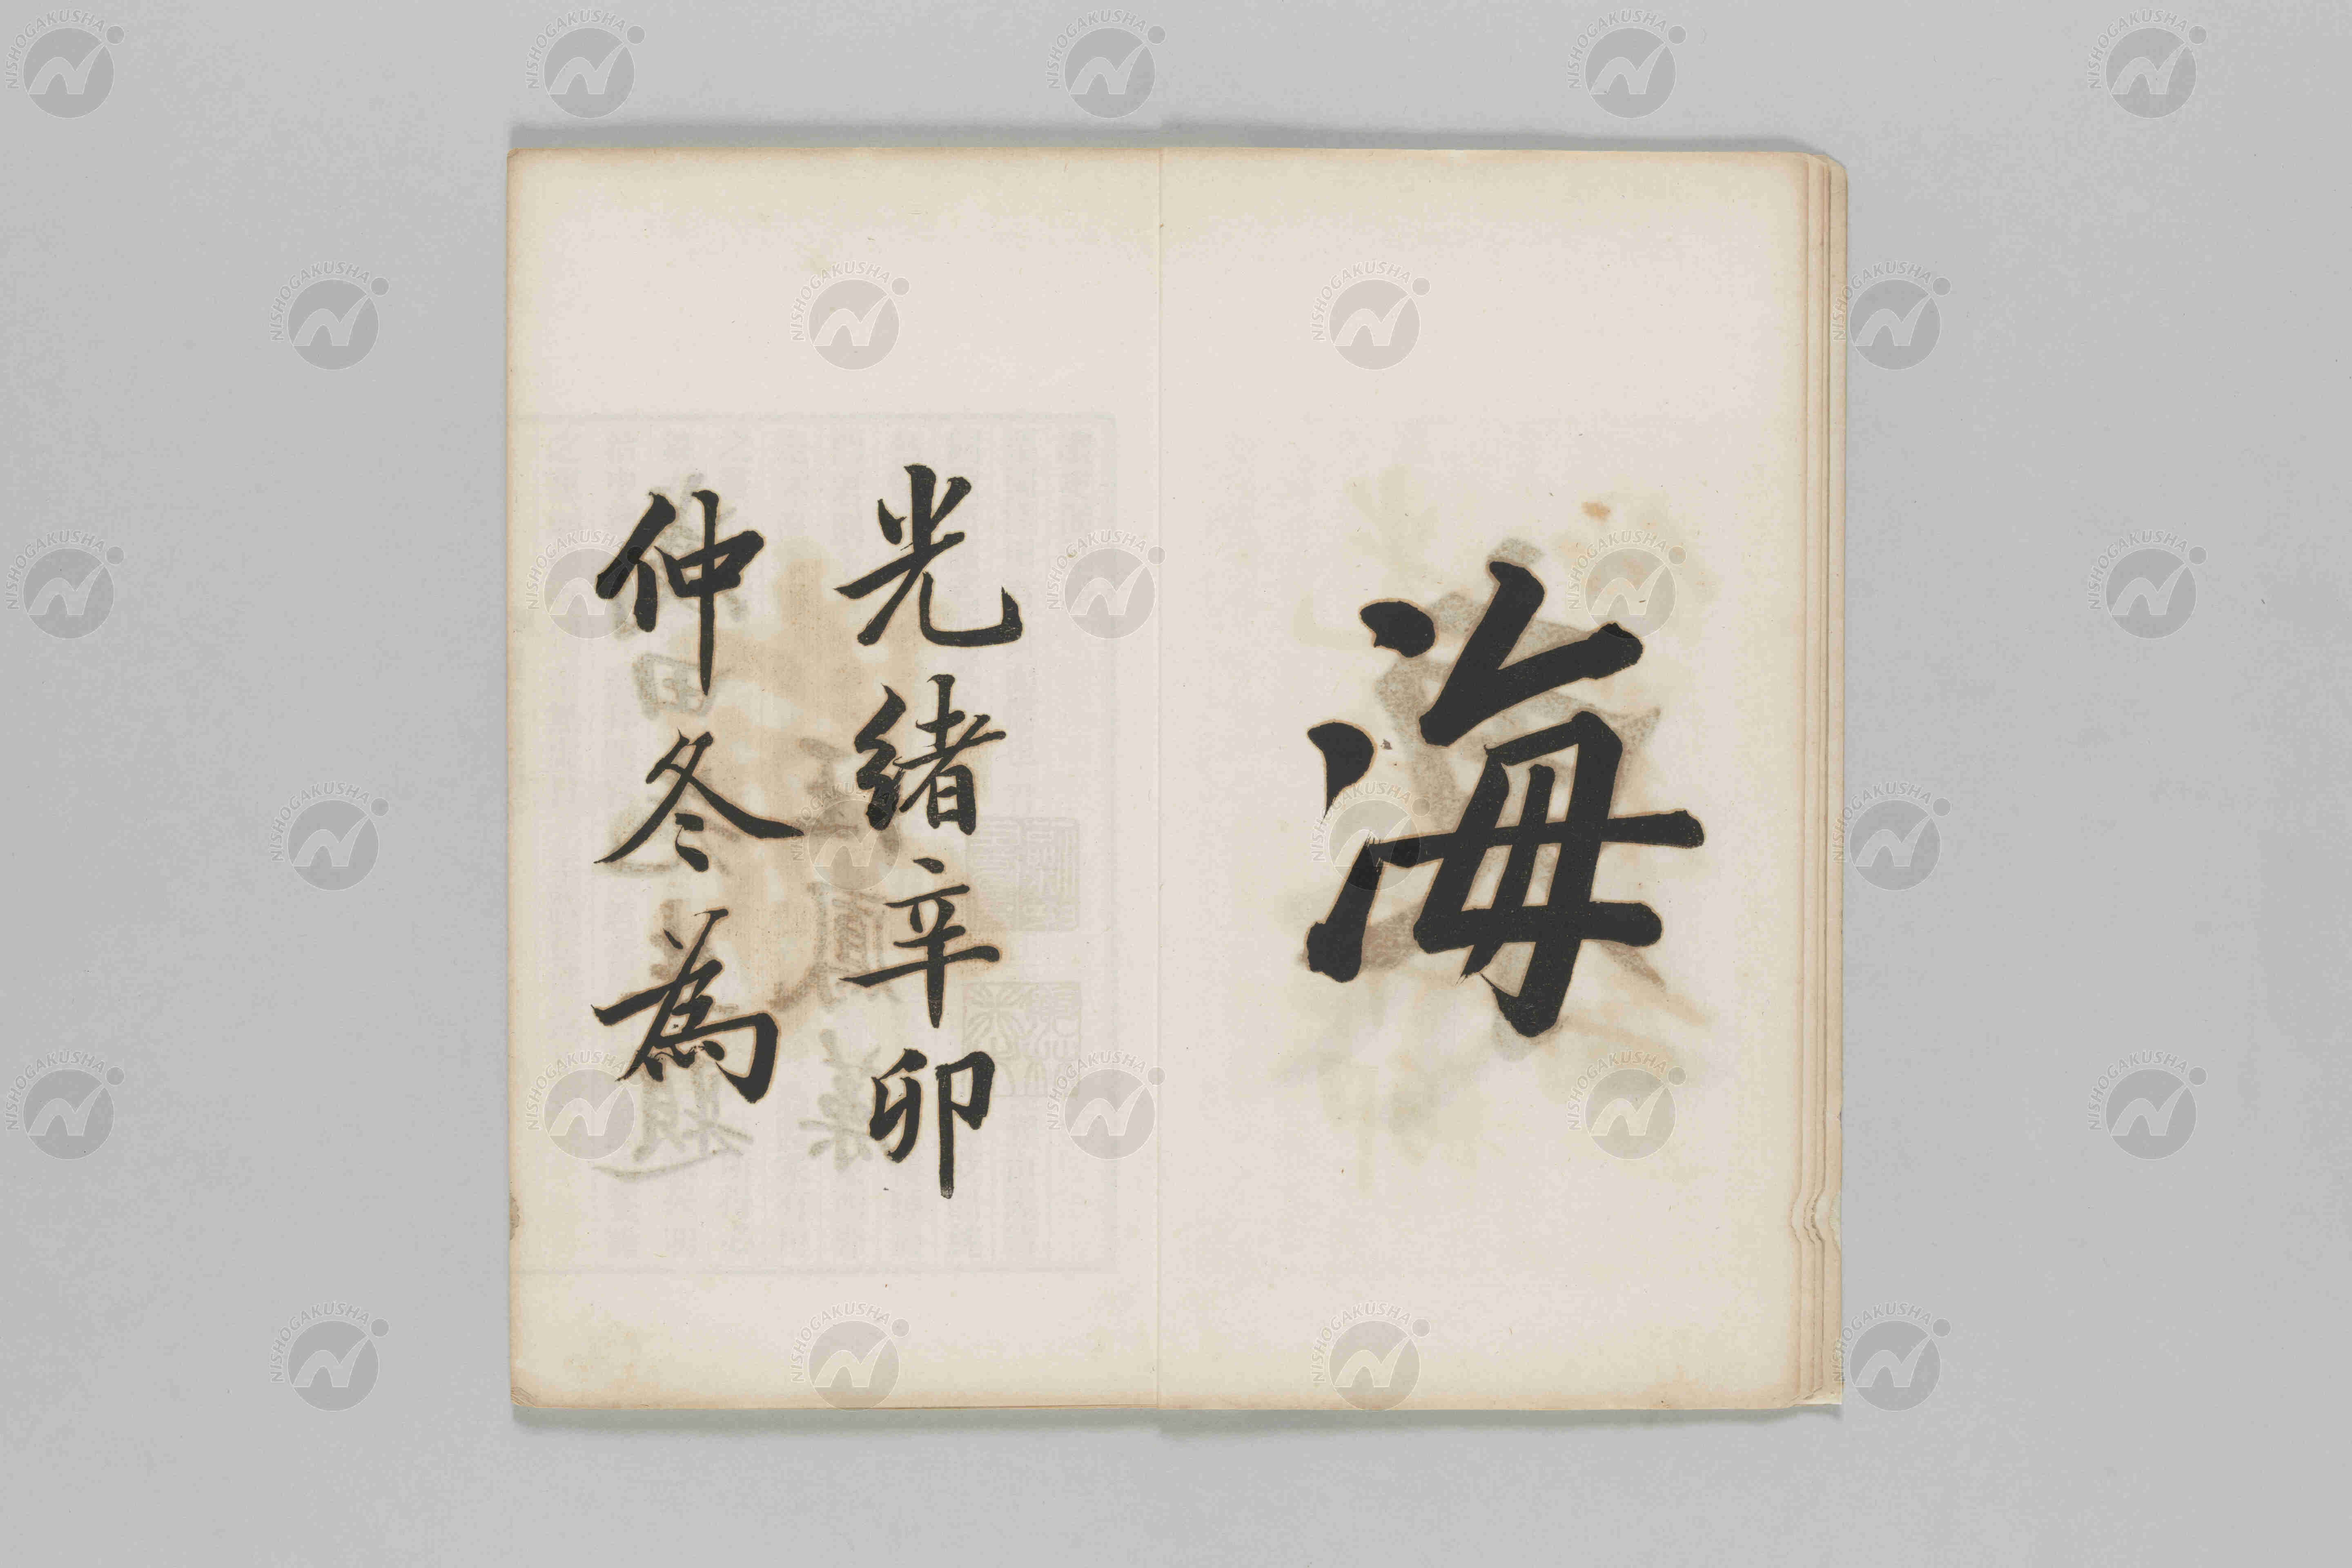 海
光緒辛卯
仲冬為
NISHOGAKUSHA